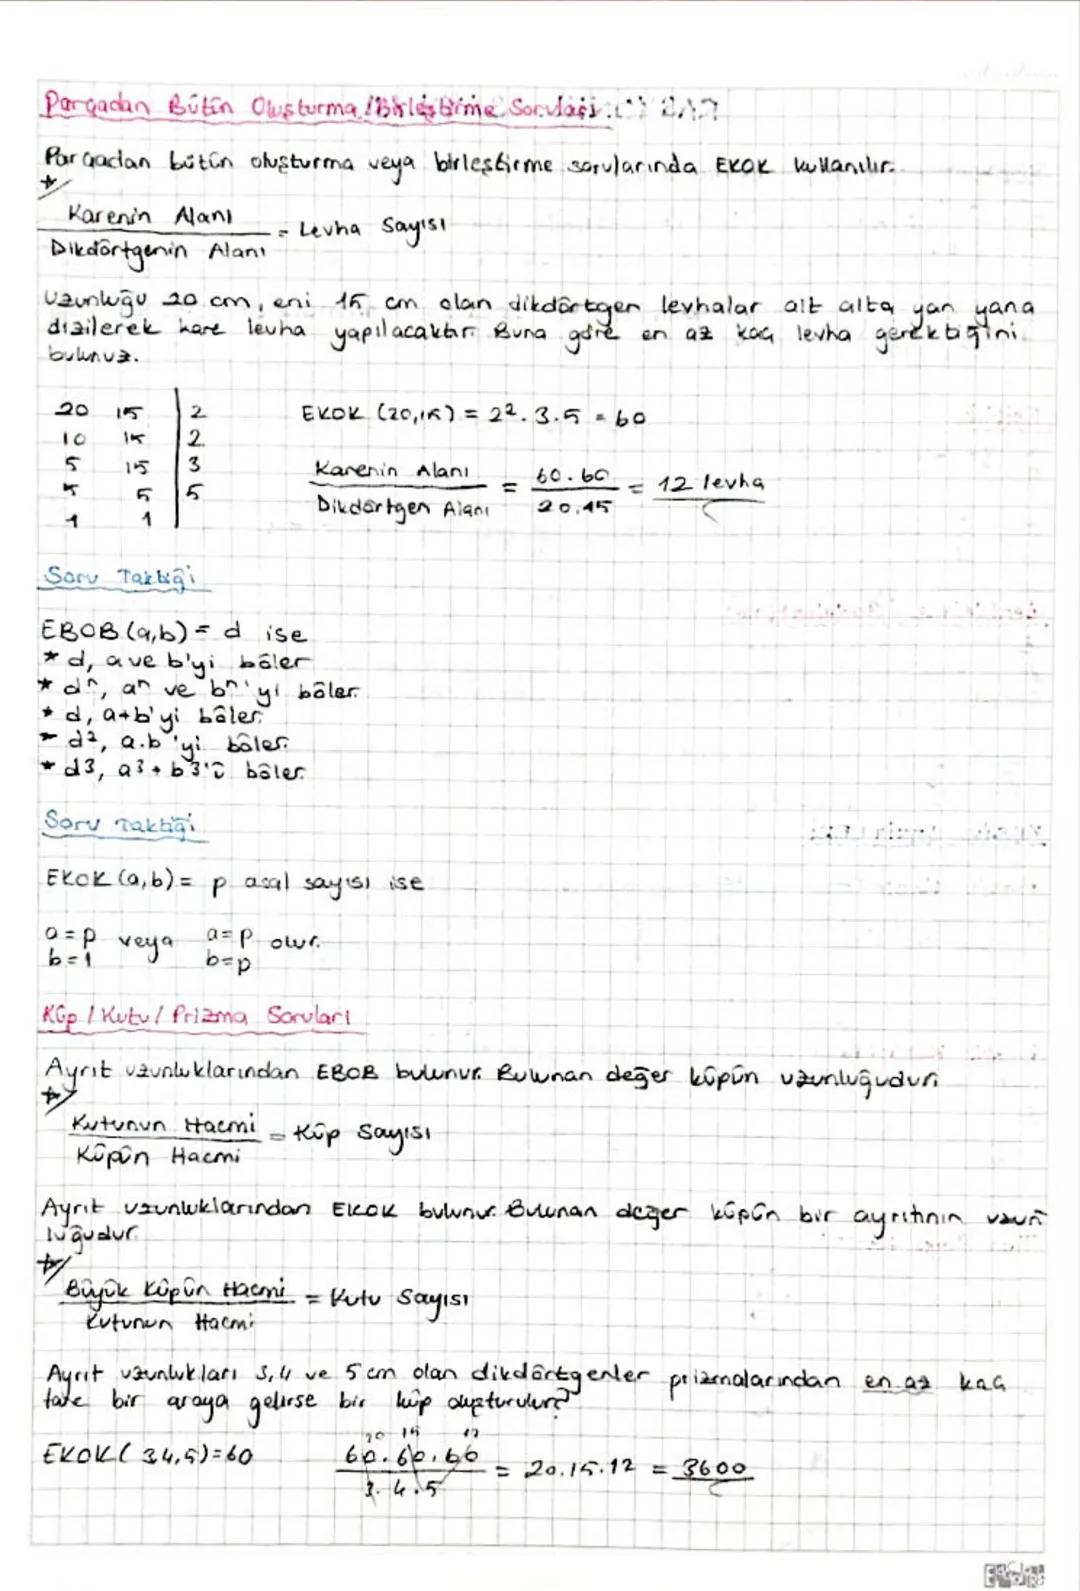 Parçadan Bütün Oluşturma / Birleştirme Soruları
Parçadan bütün oluşturma veya birleştirme sorularında EKOK kullanılır.
Karenin Alanı / Dikdörtgenin Alanı = Levha Sayısı
Uzunluğu 20 cm, eni 15 cm olan dikdörtgen levhalar alt alta yan yana
dizilerek kare levha yapılacaktır. Buna göre en az kaç levha gerektiğini
bulunuz.
20 15 | 2
10 15 | 2
5 15 | 3
5 5 | 5
1 1
EKOK (20,15) = 2².3.5 = 60
Karenin Alanı / Dikdörtgen Alanı = 60.60 / 20.15 = 12 levha
Soru Taktiği
EBOB (a,b) = d ise
* d, a ve b'yi böler
* dⁿ, aⁿ ve bⁿ'yi böler.
* d, a+b'yi böler.
* d², a.b'yi böler.
* d3, a3 + b3'ü böler.
Soru Taktiği
EKOK (a,b) = p asal sayısı ise
a=p veya a=p olur.
b=1 b=p
Küp / Kutu / Prizma Soruları
Ayrıt uzunluklarından EBOB bulunur. Bulunan değer küpün uzunluğudur.
Kutunun Hacmi / Küpün Hacmi = Küp Sayısı
Ayrıt uzunluklarından EKOK bulunur. Bulunan değer küpün bir ayrıtının uzun
luğudur.
Büyük Küpün Hacmi / Kutunun Hacmi = Kutu Sayısı
Ayrıt uzunlukları 3,4 ve 5 cm olan dikdörtgenler prizmalarından en az kaç
tane bir araya gelirse bir küp oluşturulur?
20 15 12
EKOK ( 3,4,5)=60 60.60.60 / 3.4.5 = 20.15.12 = 3600